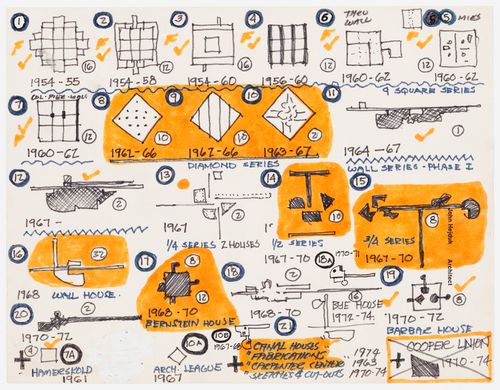 1
2
3
4
6
THRU
WALL
5
MIES
16
12
16
12
12
1954-55
1954-58
1954-60
1956-60
1960-62
1960-62
9 SQUARE SERIES
7
8
9
10
11
COL-PIER-WALL
12
10
10
2
1
1960-62
1962-66
1962-66
1963-67
1964-67
DIAMOND SERIES
WALL SERIES - PHASE I
12
13
14
15
2
2
10
8
1967-
1967
1967-70
1967-70
1/4 SERIES 2 HOUSES
1/2 SERIES
3/4 SERIES
John Hejduk
Architect
16
17
18
18A
1970-71
19
32
8
12
2
2
8
1968
WALL HOUSE.
1968-70
BERNSTEIN HOUSE
1968-70
BYE HOUSE
1972-74
1970-72
BARBAR HOUSE
20
2
1970-72
4
7A
HAMERSKOLD
1961
10A
ARCH. LEAGUE
1967
10B
21
CANAL HOUSES 1974
FABRICATIONS
CARPENTER CENTER 1963
SKETCHES & CUT-OUTS 1970-74
COOPER UNION
1970-74